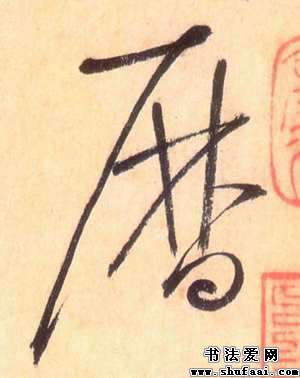 暦
书法爱网
www.shufaai.com